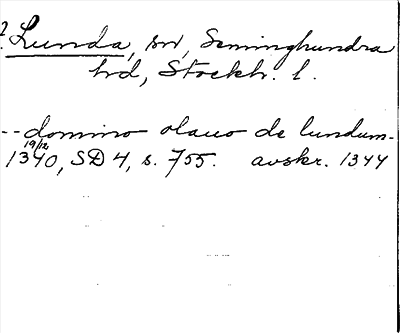 ?
Lunda, sn, Seminghundra
hd, Stockh. l.
-- domino olauo de lundum-
19/12
1340, SD 4, s. 755. avskr. 1344